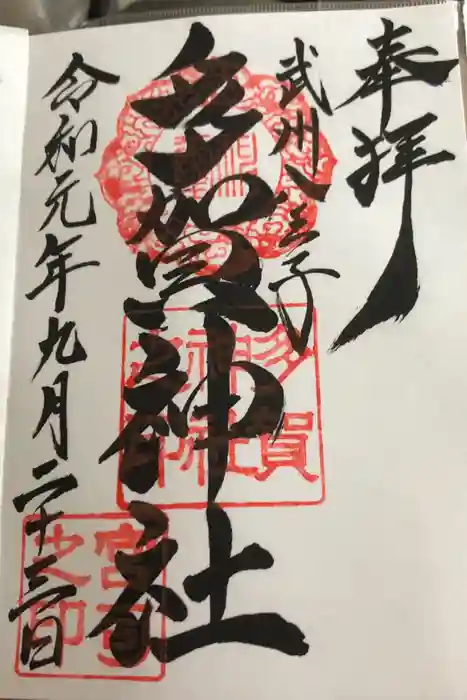 奉拝
武州八王子
多賀神社
令和元年九月二十三日
多賀
神社
之印
宮司
之印